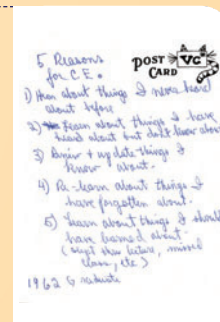 5 Reasons
for C.E.
POST VC
CARD
1) Hear about things I never heard
about before
2) Learn about things I have
heard about but don't know about
3) Review + update things I
know about.
4) Re-learn about things I
have forgotten about.
5) Learn about things I should
have learned about
(slept thru lecture, missed
class, etc)
1962 Graduate